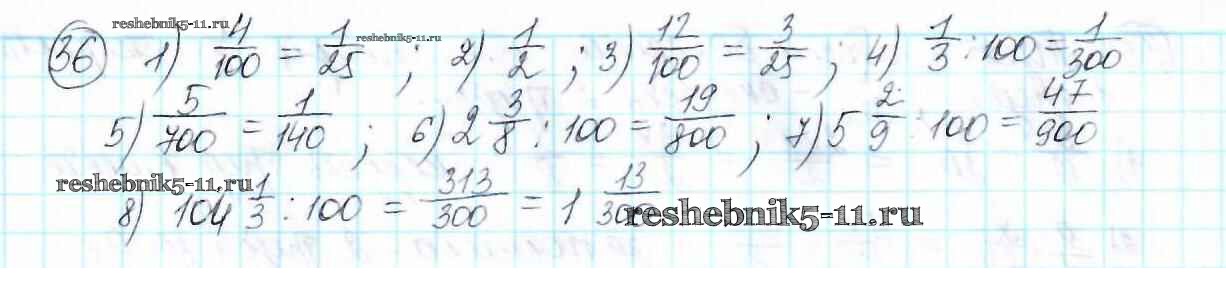 reshebnik5-11.ru
36 1) 4/100 = 1/25 ; 2) 1/2 ; 3) 12/100 = 3/25 ; 4) 1/3 : 100 = 1/300
reshebnik5-11.ru
5) 5/700 = 1/140 ; 6) 2 3/8 : 100 = 19/800 ; 7) 5 2/9 : 100 = 47/900
reshebnik5-11.ru
8) 104 1/3 : 100 = 313/300 = 1 13/300
reshebnik5-11.ru